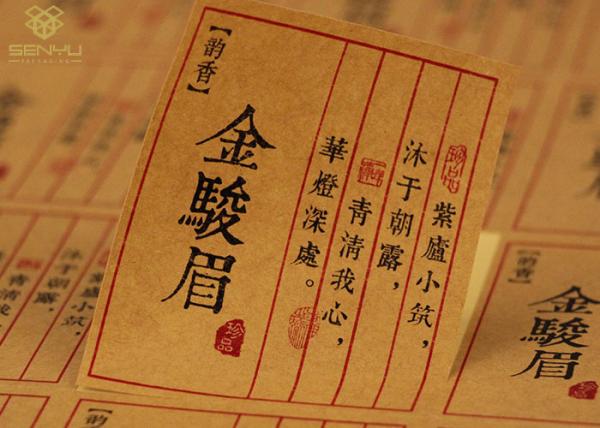 SENYU
PACKAGING
紫廬小筑,
沐于朝露,
青清我心,
華燈深處。
【韵香】
金駿眉
珍品
【韵香】
金駿眉
紫廬小筑,
沐于朝露,
【韵香】